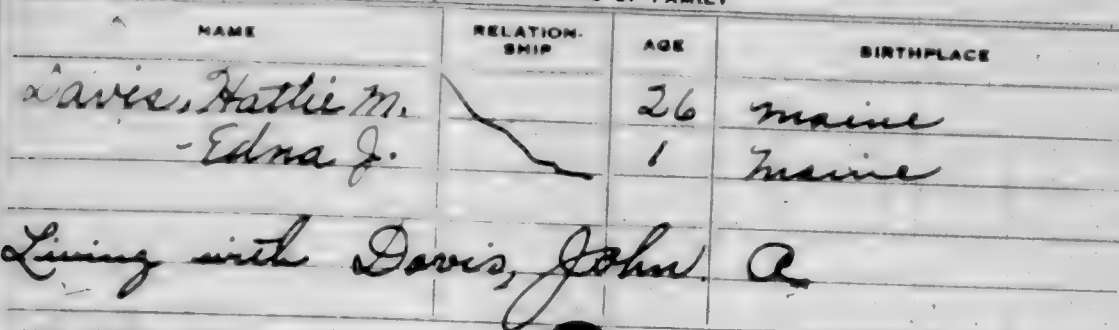 OF FAMILY
NAME RELATION-SHIP AGE BIRTHPLACE
Davis, Hattie M. 26 Maine
-Edna J. 1 Maine
Living with Davis, John. A